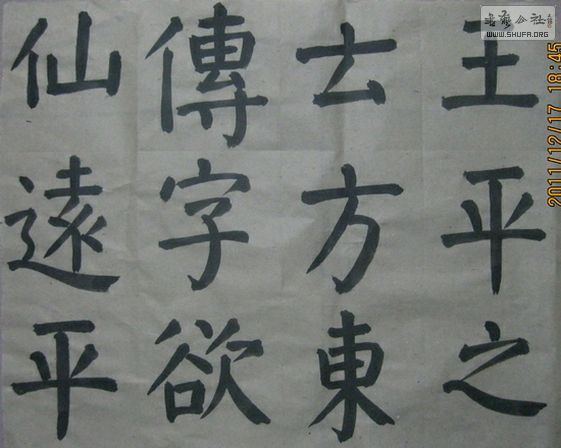 王平之
士方東
傳字欲
仙遠平
WWW.SHUFA.ORG
2011/12/17 18:45